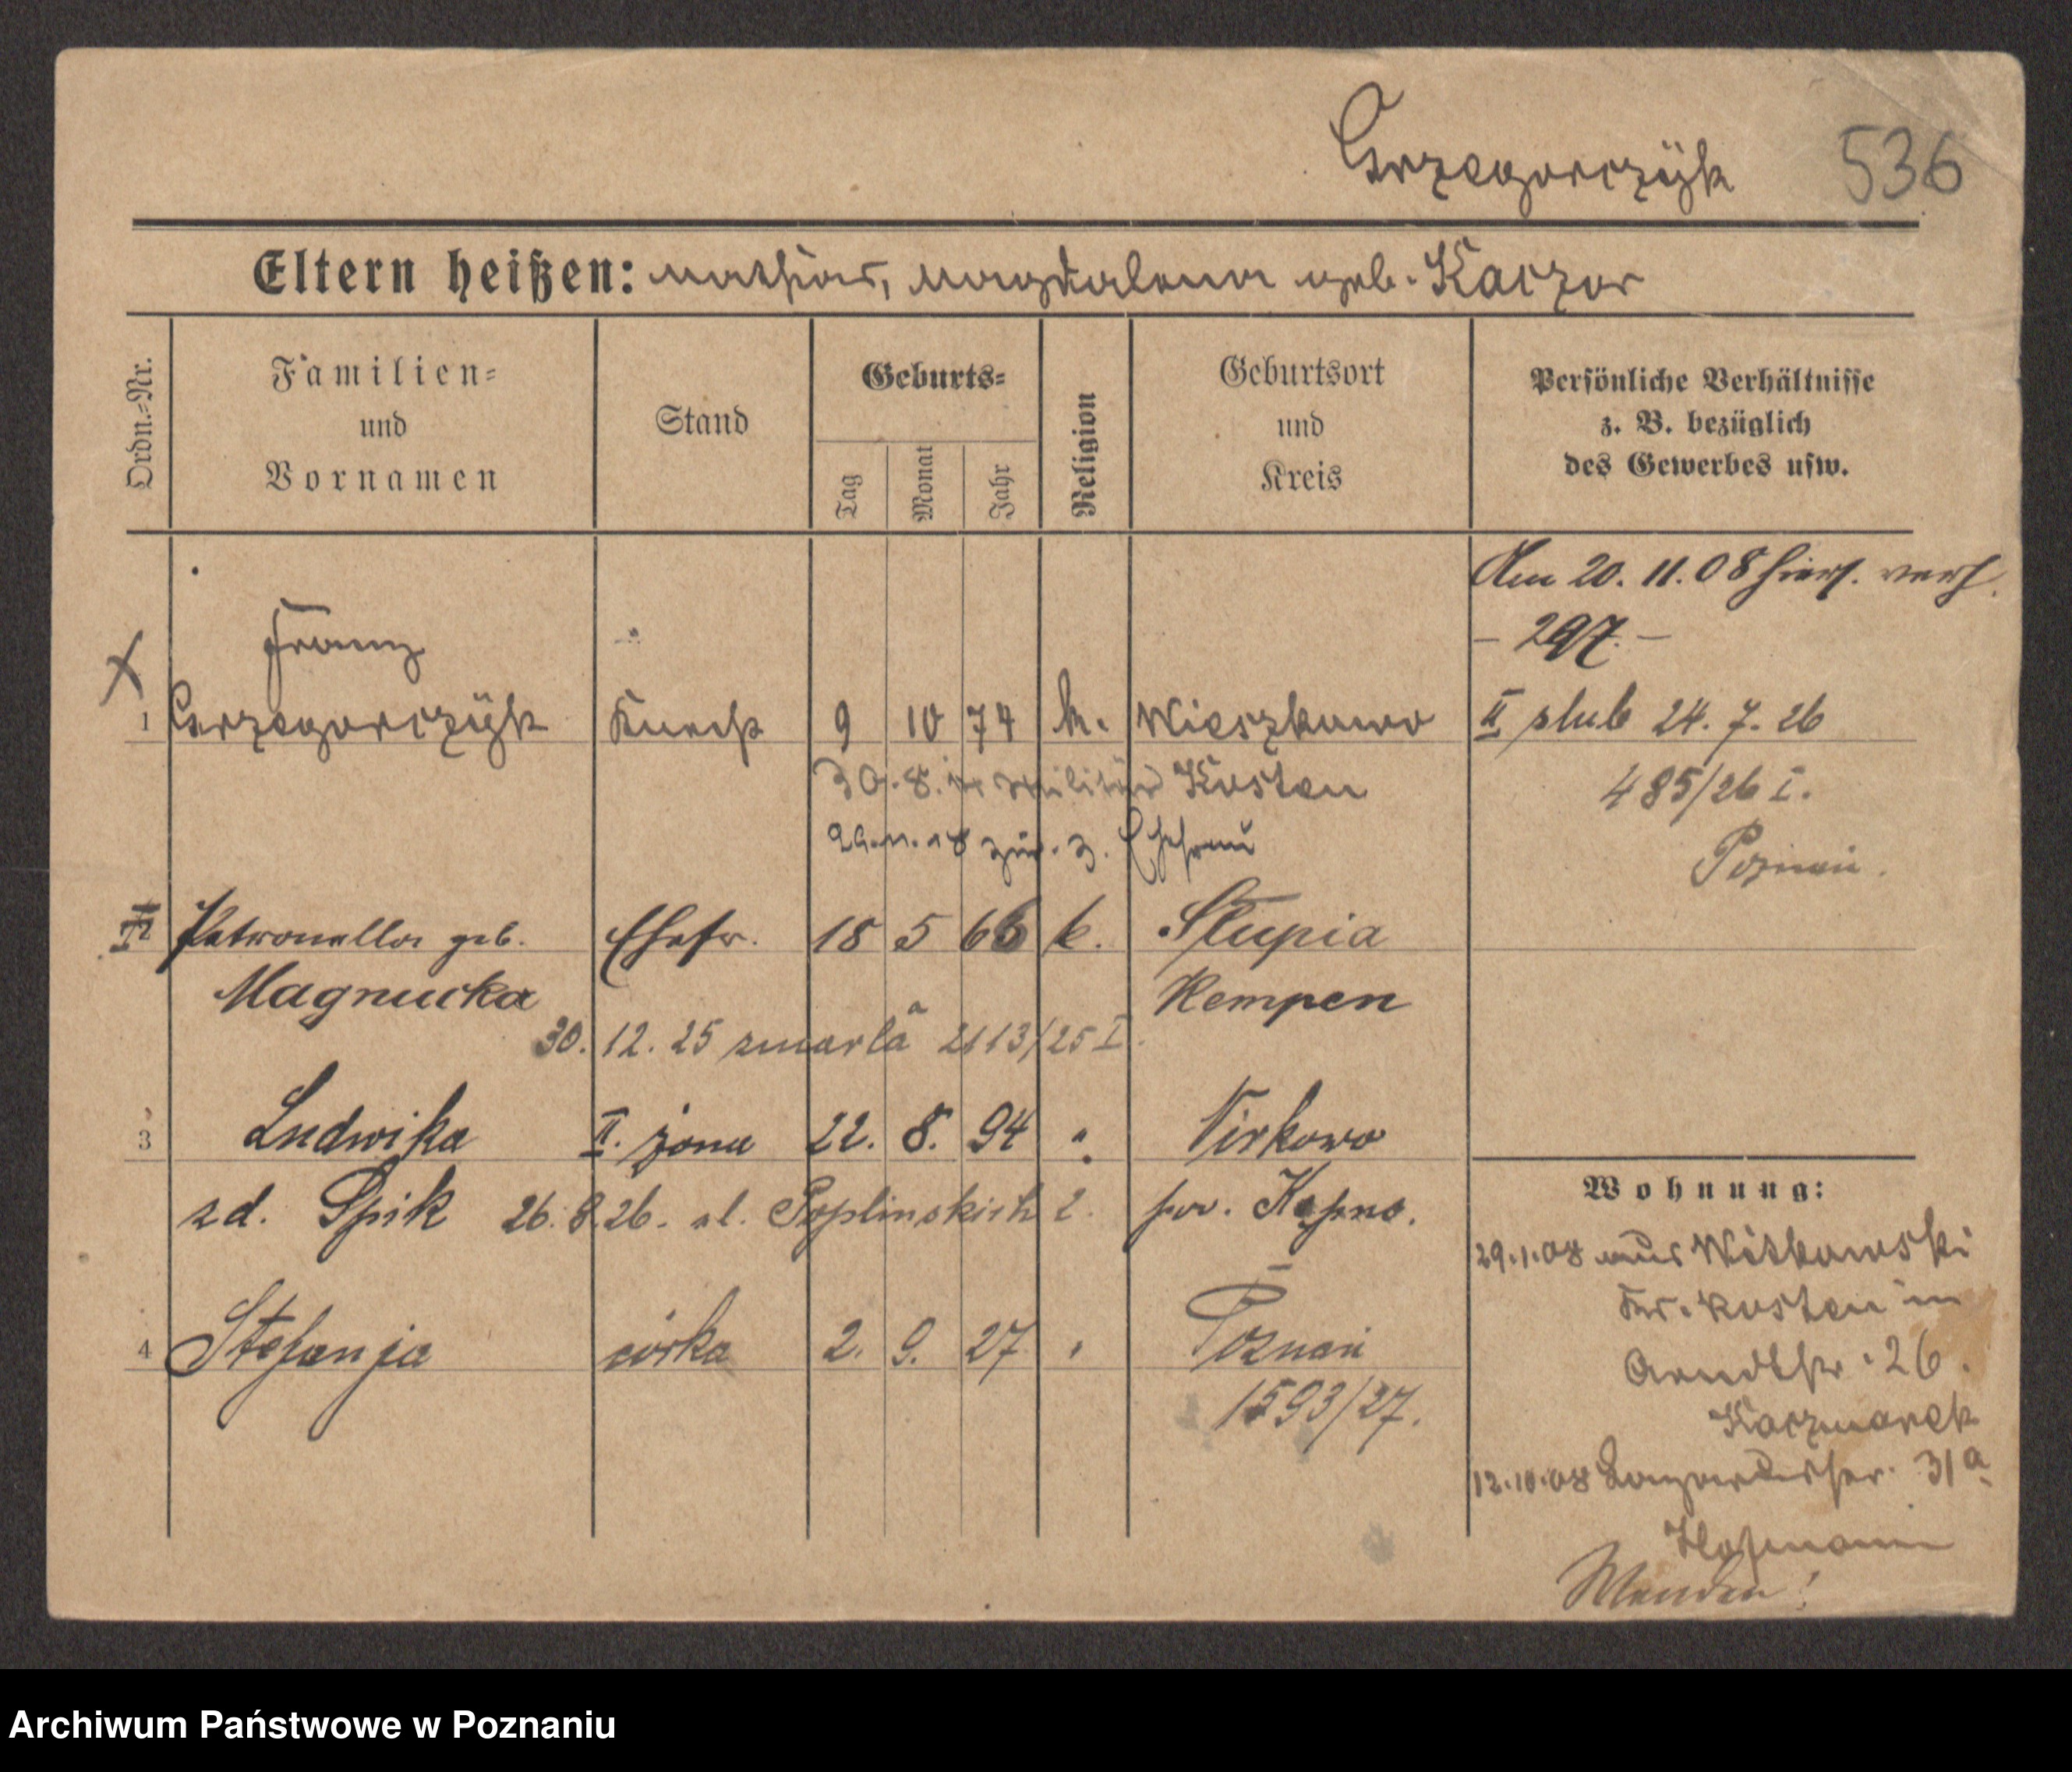 Grzegorczÿk 536
Eltern heißen: Mathias, Magdalena geb. Kaczor
Ordn.-Nr.
Familien-
und
Vornamen
Stand
Geburts-
Tag
Monat
Jahr
Religion
Geburtsort
und
Kreis
Persönliche Verhältnisse
z. B. bezüglich
des Gewerbes usw.
Am 20. 11. 08 hiers. verh.
- 297. -
Franz
1 Grzegorczÿk Knecht 9 10 74 k. Wieszkowo
II ślub 24. 7. 26
30. 8. Militär Kosten
485/26 I.
zur. z. Ehefrau
Poznań.
II Petronella geb. Ehefr. 18 5 66 k. Słupia
Magnucka Kempen
30. 12. 25 zmarła 2113/25 I.
3 Ludwika II. żona 22. 8. 94 " Virkowo
zd. Spik 26. 8. 26. ul. Poplinskich 2. pow. Kępno.
4 Stefanja córka 2. 9. 27 " Poznań
1593/27.
Wohnung:
29. 1. 08 aus Witkowski
Kr. Kosten in
Arndtstr. 26.
Kaczmarek
12. 10. 08 str. 31a
Hofmann
Wenden!
Archiwum Państwowe w Poznaniu